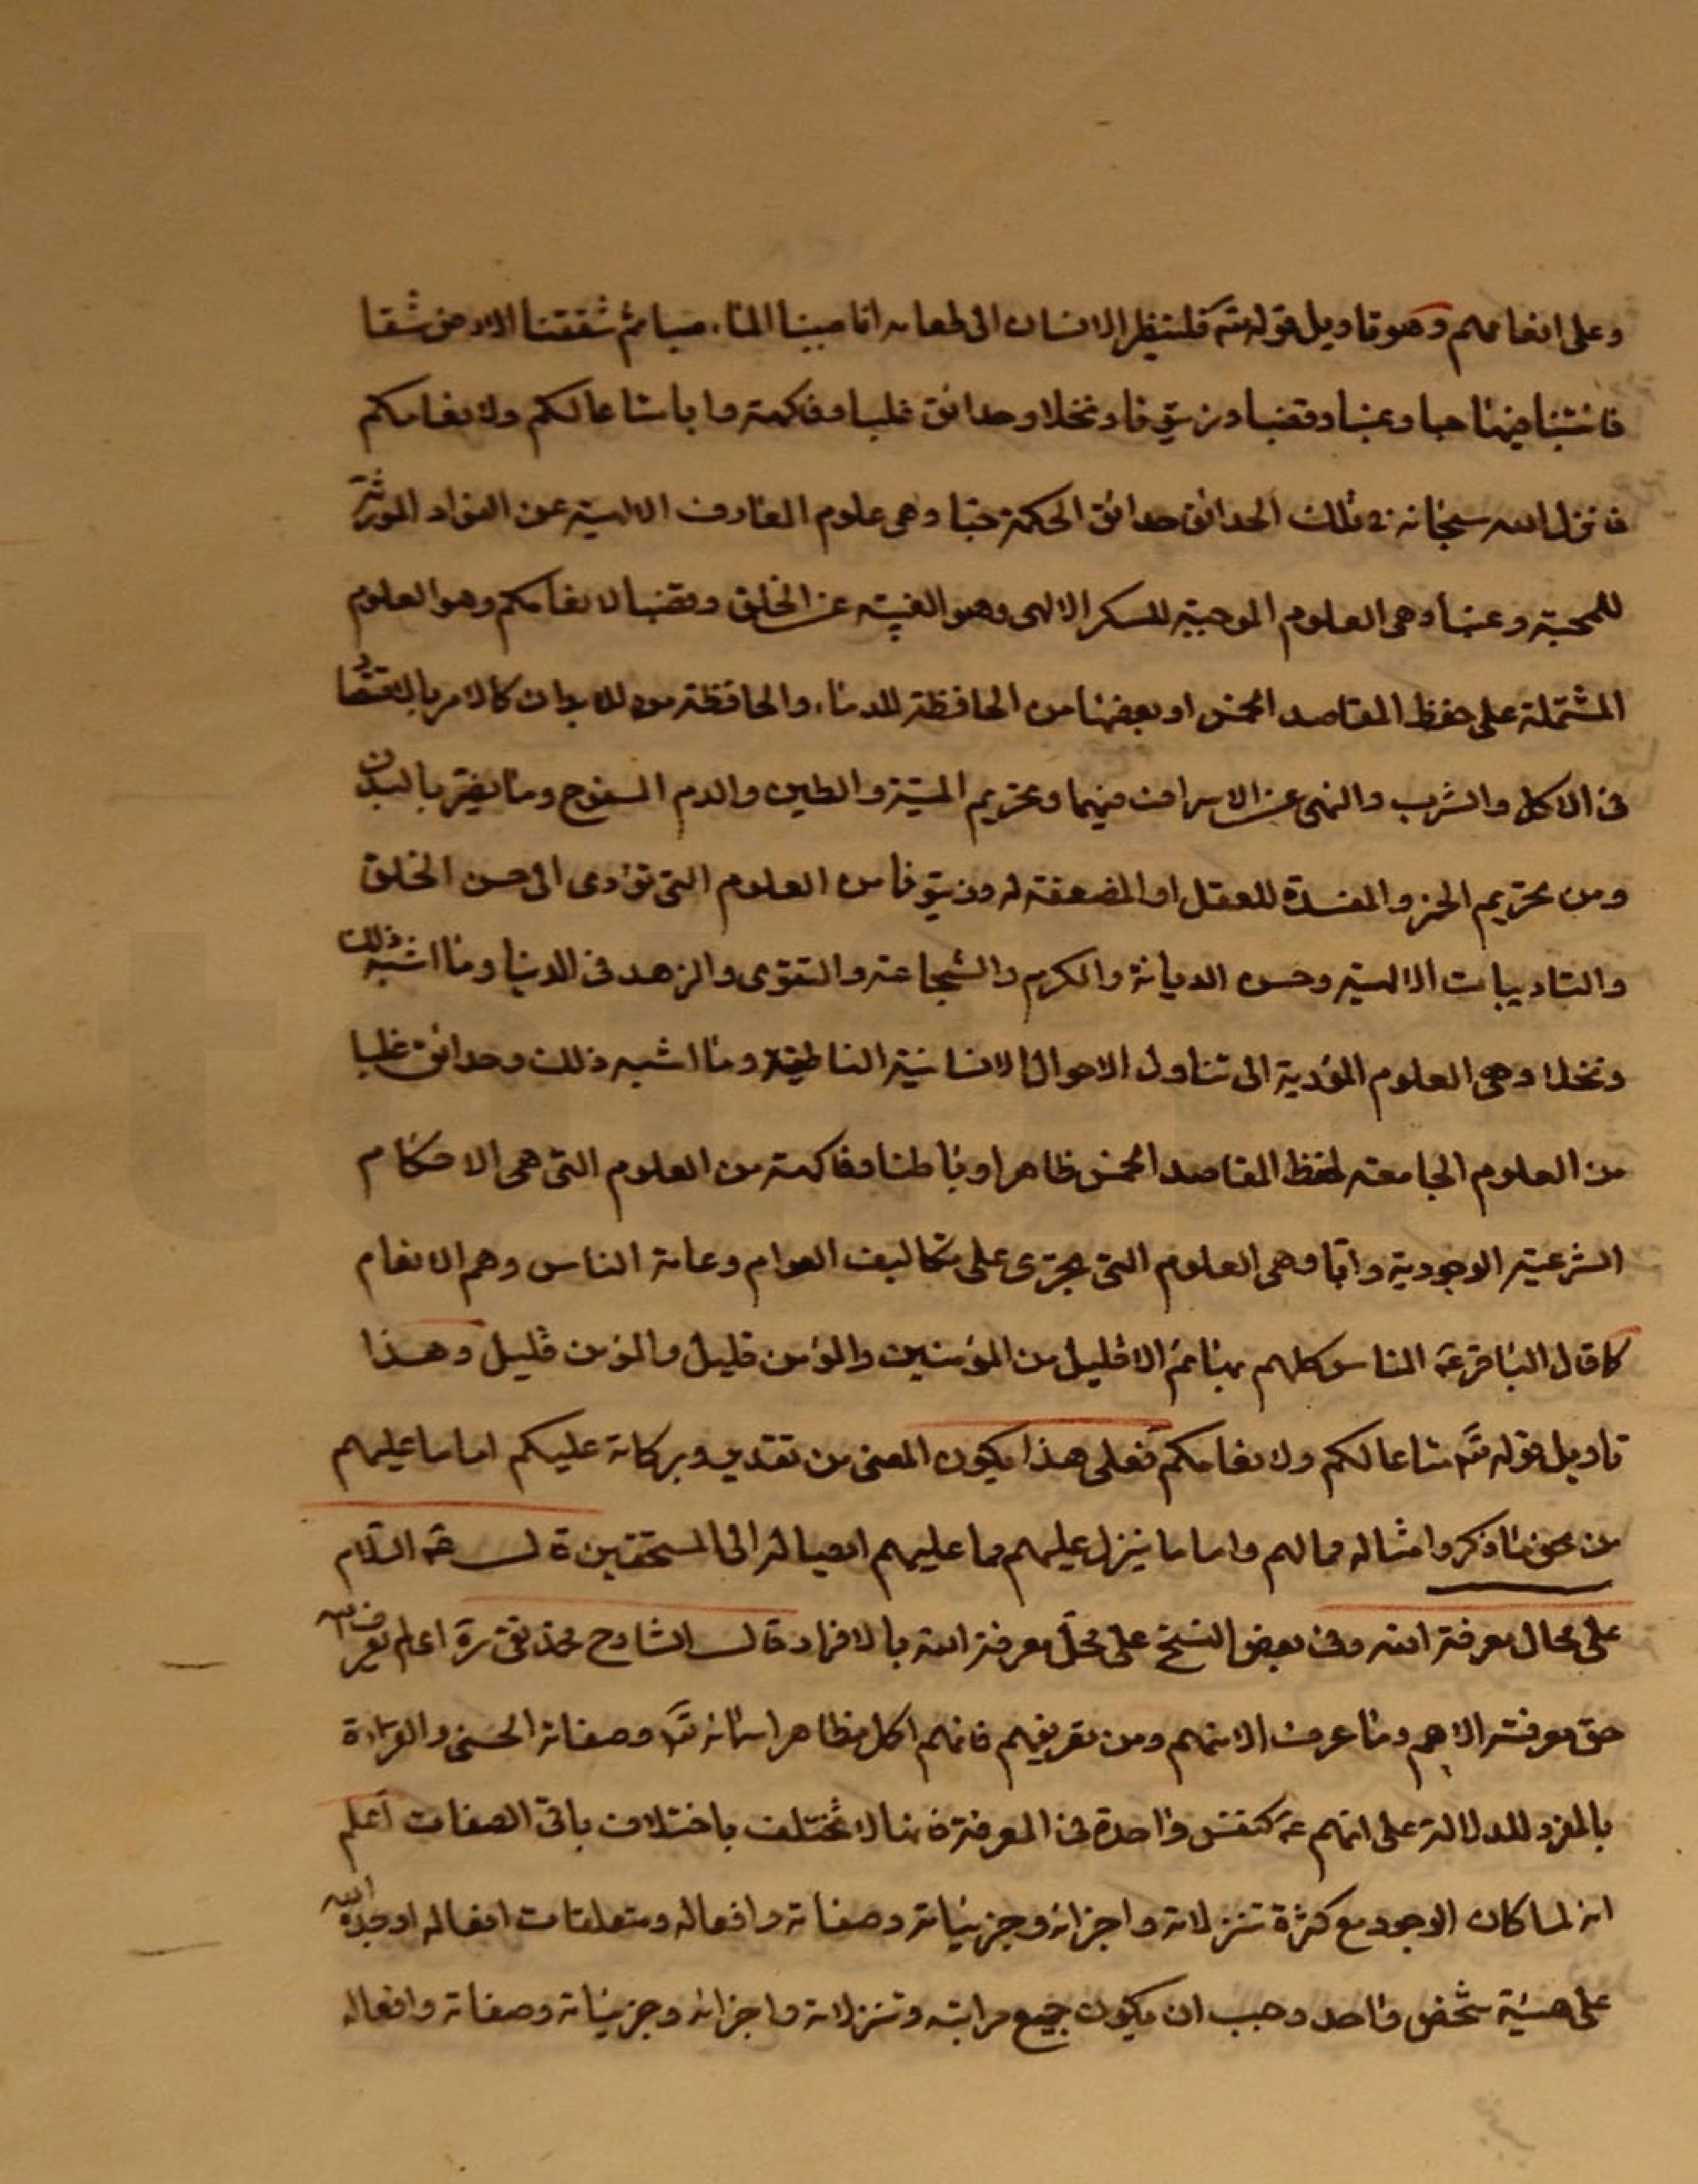 وعلى انعامهم وهو تاويل قوله تع فلينظر الانسان الى طعامه انا صببنا الماء صبا ثم شققنا الارض شقا
فانبتنا فيها حبا وعنبا وقضبا وزيتونا ونخلا وحدائق غلبا وفاكهة وابا متاعا لكم ولانعامكم
فانزل الله سبحانه في تلك الحدائق حدائق الحكمة حبا وهى علوم المعارف الالهية عن الفؤاد المورثة
للمحبة وعنبا وهى العلوم الموجبة للسكر الالهى وهو الغيبة عن الخلق وقضبا لانعامكم وهو العلوم
المشتملة على حفظ المقاصد الخمس او بعضها من الحافظة للدماء والحافظة للابدان كالامر بالاقتصاد
فى الاكل والشرب والنهى عن الاسراف فيهما وتحريم الميتة والطين والدم المسفوح وما يضر بالبدن
ومن تحريم الخمر والمفسدة للعقل او المضعفة له وزيتونا من العلوم التى تؤدى الى حسن الخلق
والتاديبات الالهية وحسن الديانة والكرم والشجاعة والتقوى والزهد فى الدنيا وما اشبه ذلك
ونخلا وهى العلوم المؤدية الى تناول الاحوال الانسانية الناطقية وما اشبه ذلك وحدائق غلبا
من العلوم الجامعة لحفظ المقاصد الخمس ظاهرا وباطنا وفاكهة من العلوم التى هى الاحكام
الشرعية الوجودية وابا وهى العلوم التى تجرى على تكاليف العوام وعامة الناس وهم الانعام
كما قال الباقر ع الناس كلهم بهائم الا قليل من المؤمنين والمؤمن قليل والمؤمن قليل وهذا
تاويل قوله تع متاعا لكم ولانعامكم فعلى هذا يكون المعنى من تقدير وبركاته عليكم اما ما عليهم
من نحو ما ذكر وامثاله فمالهم واما ما ينزل عليهم مما عليهم ايصاله الى المستحقين قال ع السلام
على محال معرفة الله وفى بعض النسخ على محل معرفة الله بالافراد قال الشارح محمد تقى ره اعلم يعرف الله
حق معرفته الا هم وما عرف الا منهم ومن تعريفهم فانهم اكمل مظاهر اسمائه تع وصفاته الحسنى والقراءة
بالمفرد للدلالة على انهم ع كنفس واحدة فى المعرفة فانها لا تختلف باختلاف باقى الصفات اعلم
انه لما كان الوجود مع كثرة تنزلاته واجزائه وجزئياته وصفاته وافعاله ومتعلقات افعاله اوجده الله
على هيئة شخص واحد وجب ان يكون جميع مراتبه وتنزلاته واجزائه وجزئياته وصفاته وافعاله